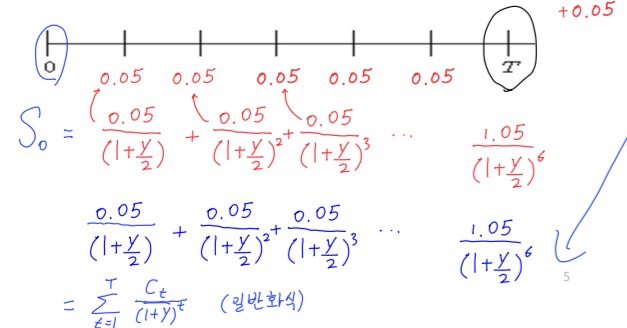 +0.05
0 T
0.05 0.05 0.05 0.05 0.05
S₀ = 0.05/(1+y/2) + 0.05/(1+y/2)² + 0.05/(1+y/2)³ ... 1.05/(1+y/2)⁶
0.05/(1+y/2) + 0.05/(1+y/2)² + 0.05/(1+y/2)³ ... 1.05/(1+y/2)⁶
5
= Σ_{t=1}^{T} C_t/(1+y)^t (일반화식)